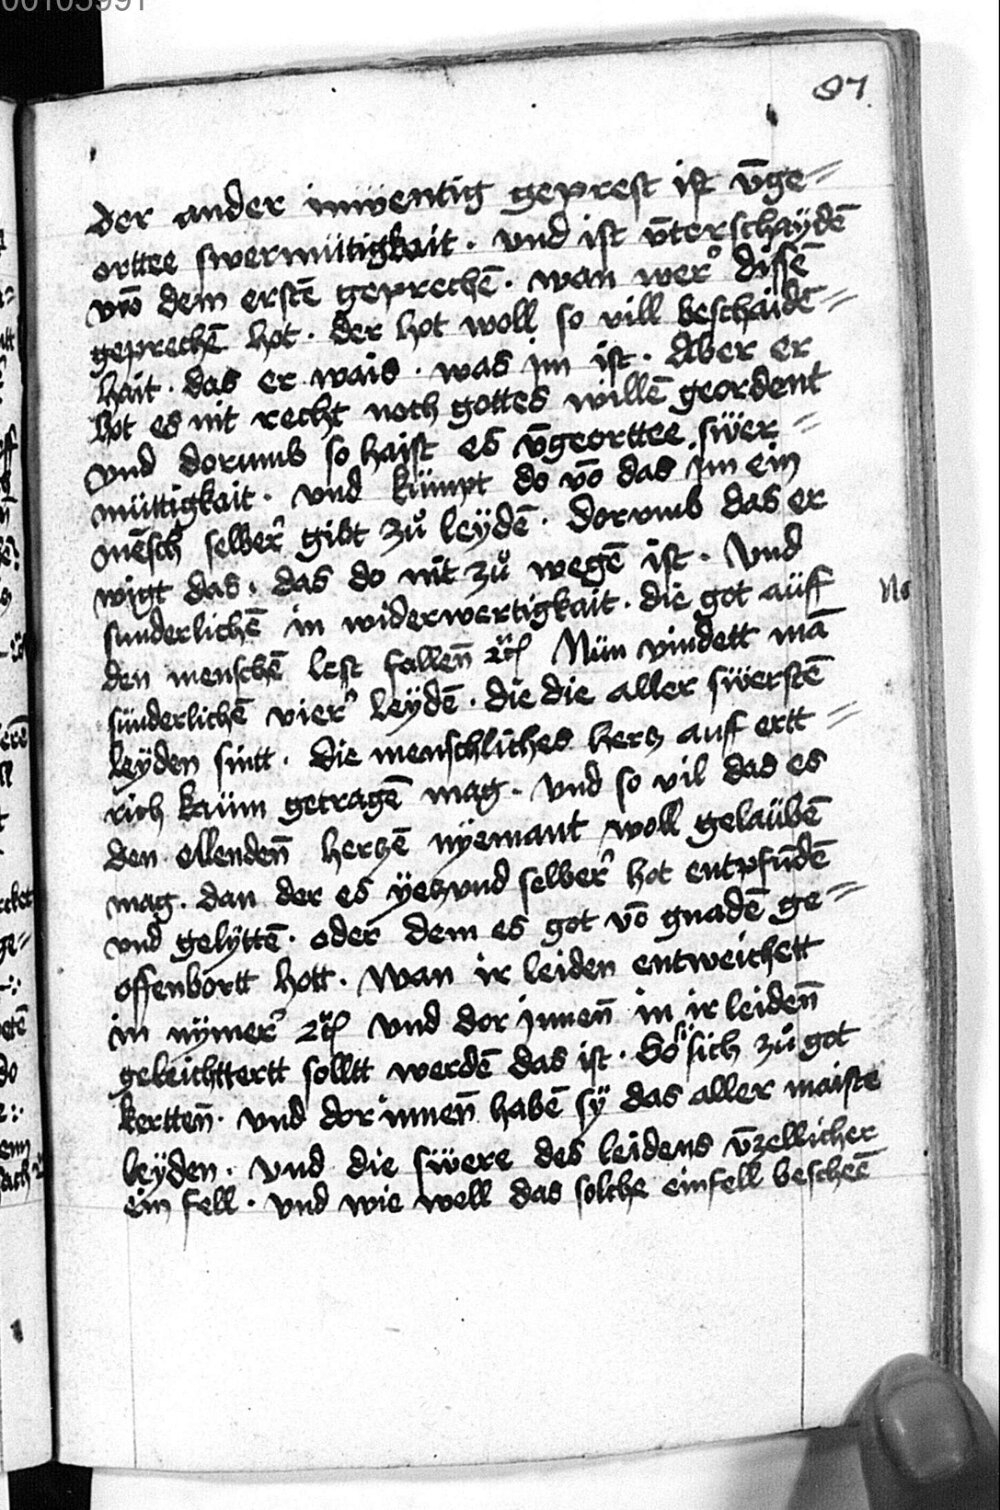 00105991
87.
der ander inwentig geprest ist v̄ge=
orttee swermütigkait. vnd ist v̄terschaydē
vō dem erstē geprechē. wan wer dissē
geprechē hot. der hot woll so vill beschaidē=
hait. das er wais. was im ist. Aber er
hot es nit recht noch gottes willē geordent
vnd dorumb so haist es v̄georttee swer=
müttigkait. vnd kümpt do vō das im ein
mēsch selber gibt zů leydē. dorvmb das er
wigt das. das do nit zů wegē ist. Vnd
sunderlichē in widerwertigkait. die got auff
No
den menschē lest fallen̄ Nün vindett mā
sünderlichē vier leydē. die die aller swerstē
leyden sintt. die menschliches hercz auff ertt=
rich kaüm getragē mag. Vnd so vil das es
den ellenden̄ herczē nyemant woll gelaübē
mag. dan der es yeczvnd selber hot entpfūdē
vnd gelyttē. oder dem es got vō gnadē ge=
offenbortt hott. Wan ir leiden entweichett
in nymer vnd dor jnnen̄ in ir leiden̄
geleichttertt solltt werdē das ist. So sy sich zů got
kertten̄. vnd dor innen̄ habē sy das aller maiste
leyden. Vnd die swere des leidens v̄zellicher
ein fell. vnd wie well das solche einfell bescheē